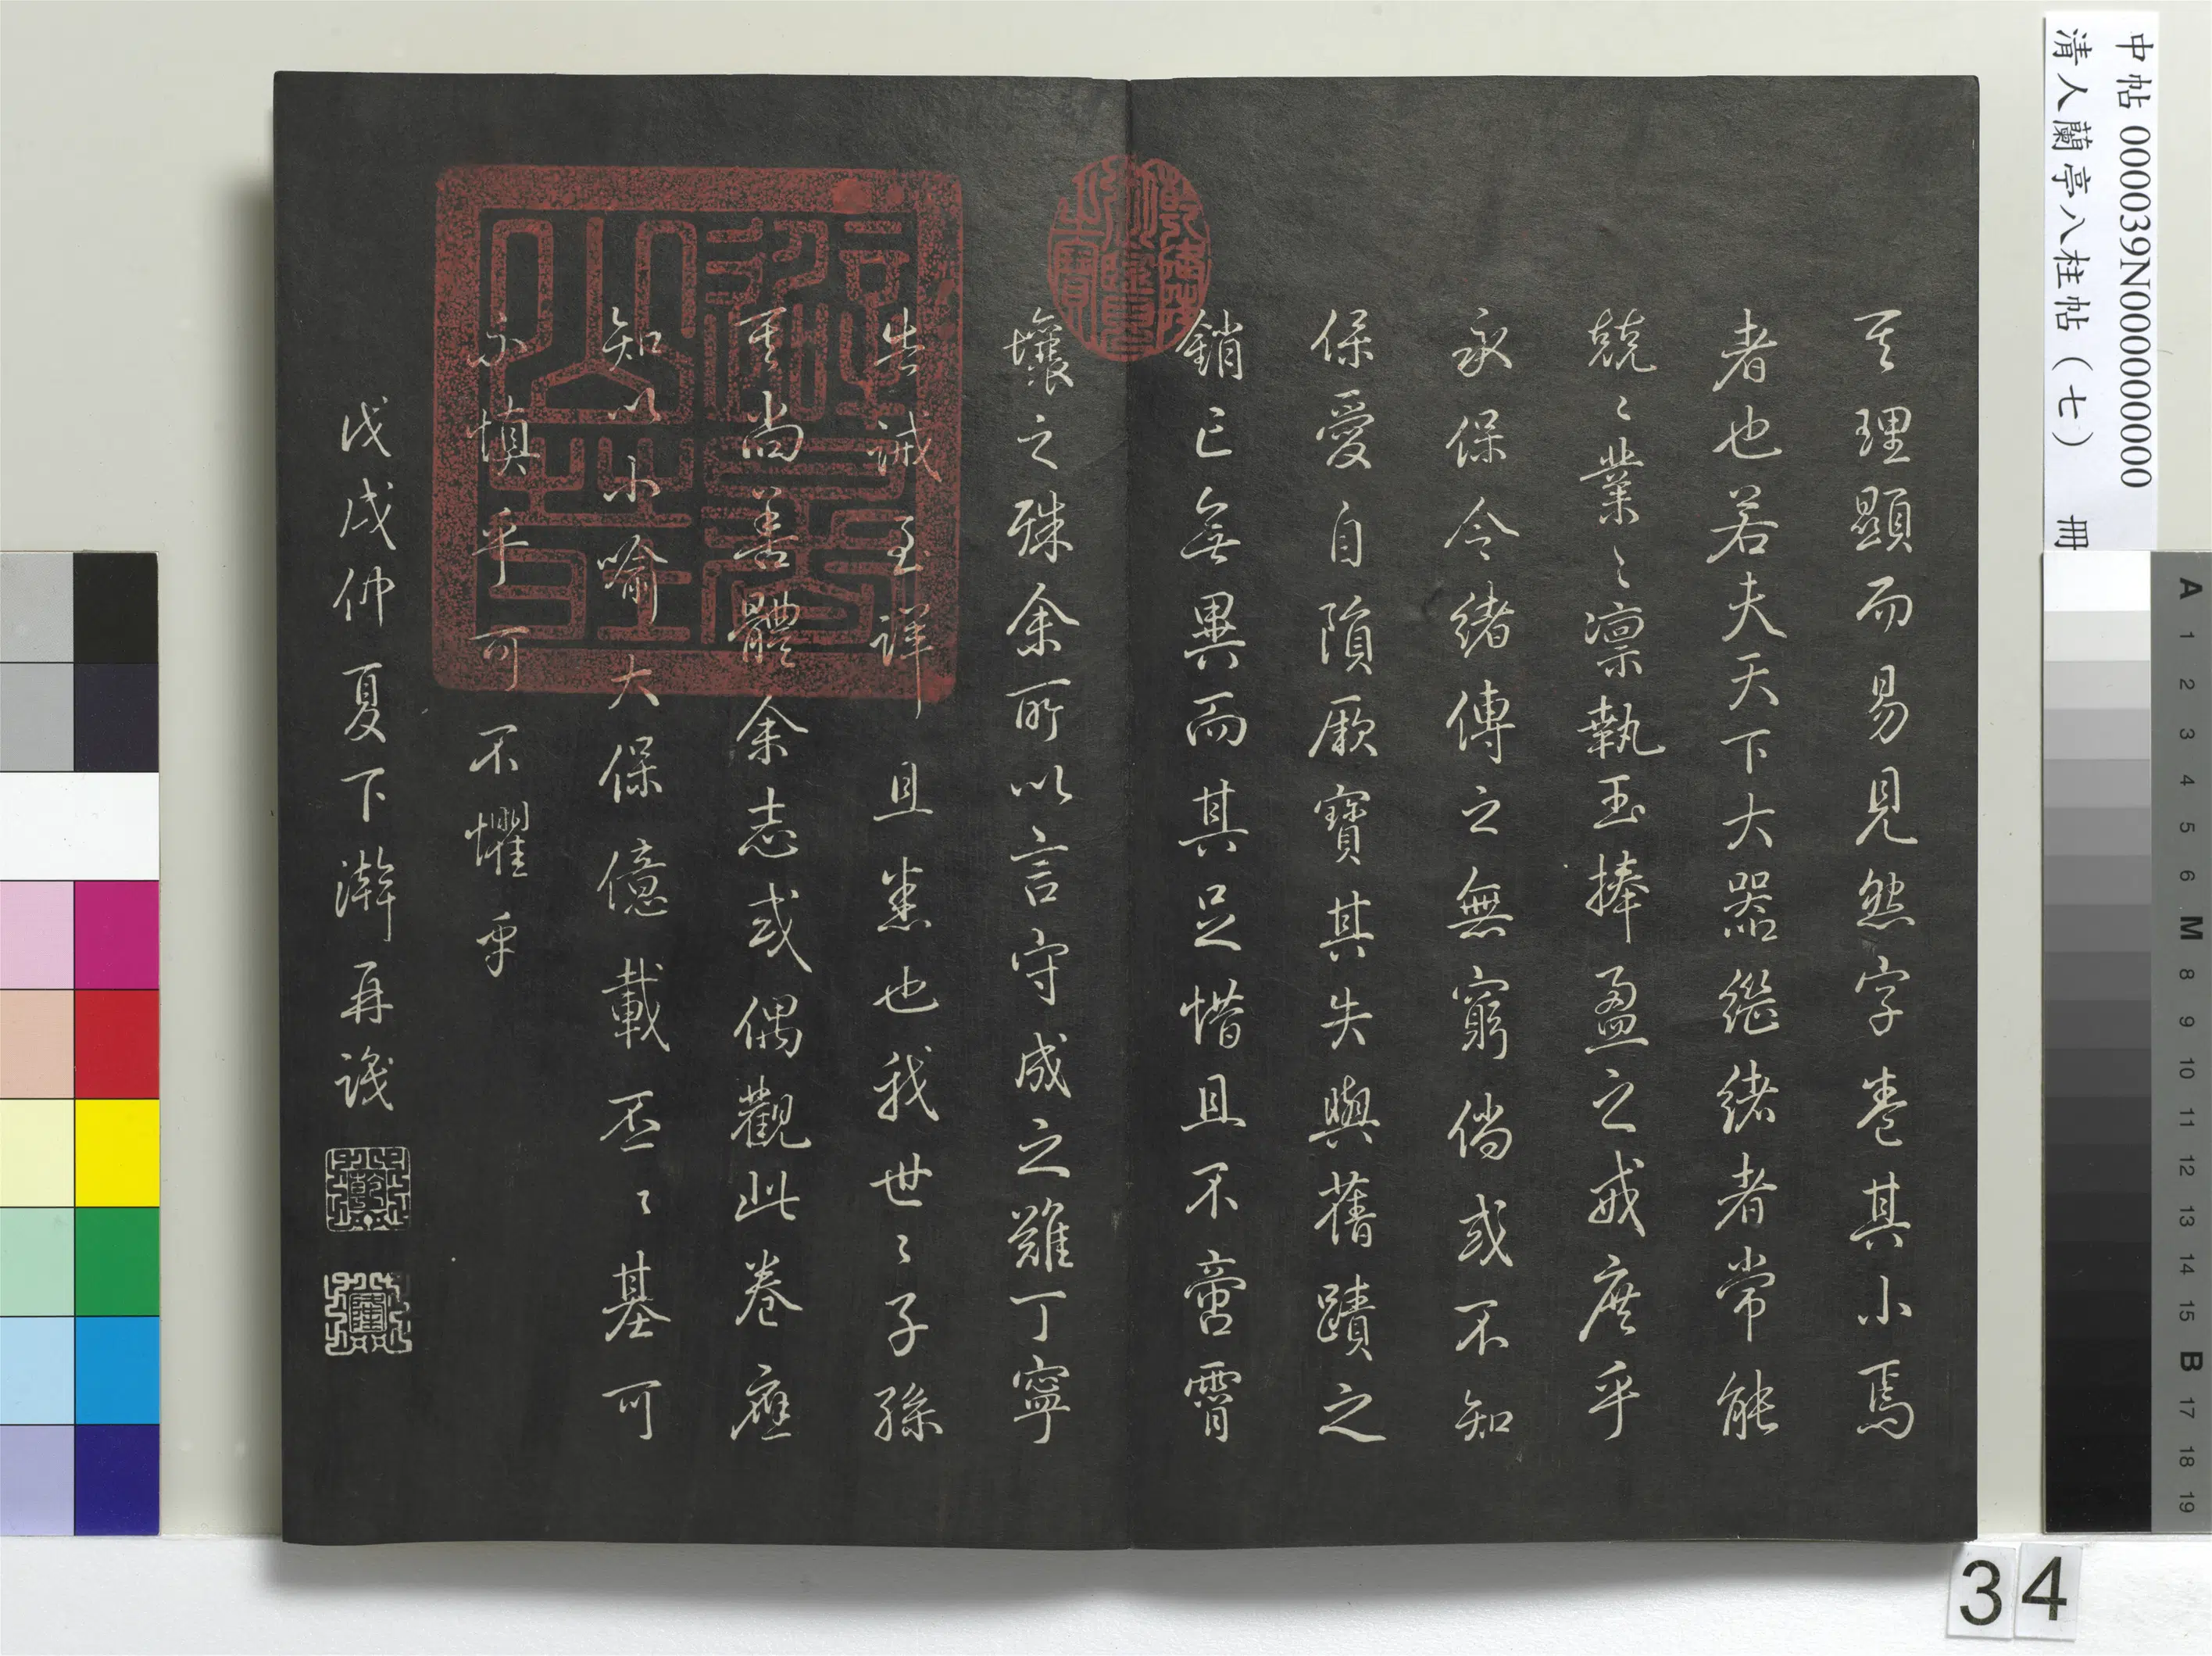 中帖 000039N000000000
清人蘭亭八柱帖（七） 冊
其理顯而易見然字卷其小焉
者也若夫天下大器繼緒者常能
兢〻業〻凛執玉捧盈之戒庶乎
永保令緒傳之無窮倘或不知
保愛自隕厥寶其失與舊蹟之
銷亡無異而其足惜且不啻霄
壤之殊余所以言守成之難丁寧
告誡至詳且悉也我世〻子孫
其尚善體余志或偶觀此卷應
知以小喻大保億載丕〻基可
不慎乎可不懼乎
戊戌仲夏下澣再識
乾
隆
乾隆御覽之寶
避暑山莊
A 1 2 3 4 5 6 M 8 9 10 11 12 13 14 15 B 17 18 19
34